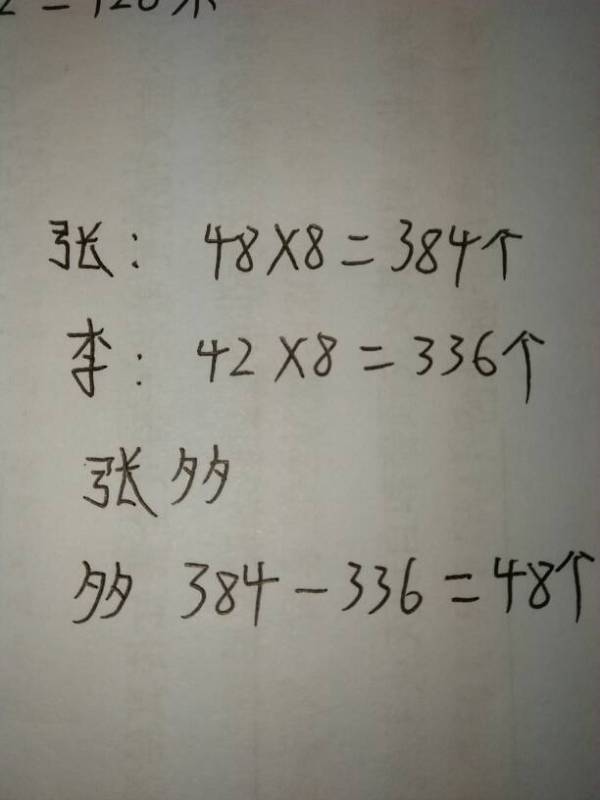 2=128米
张: 48×8=384个
李: 42×8=336个
张多
多 384-336=48个